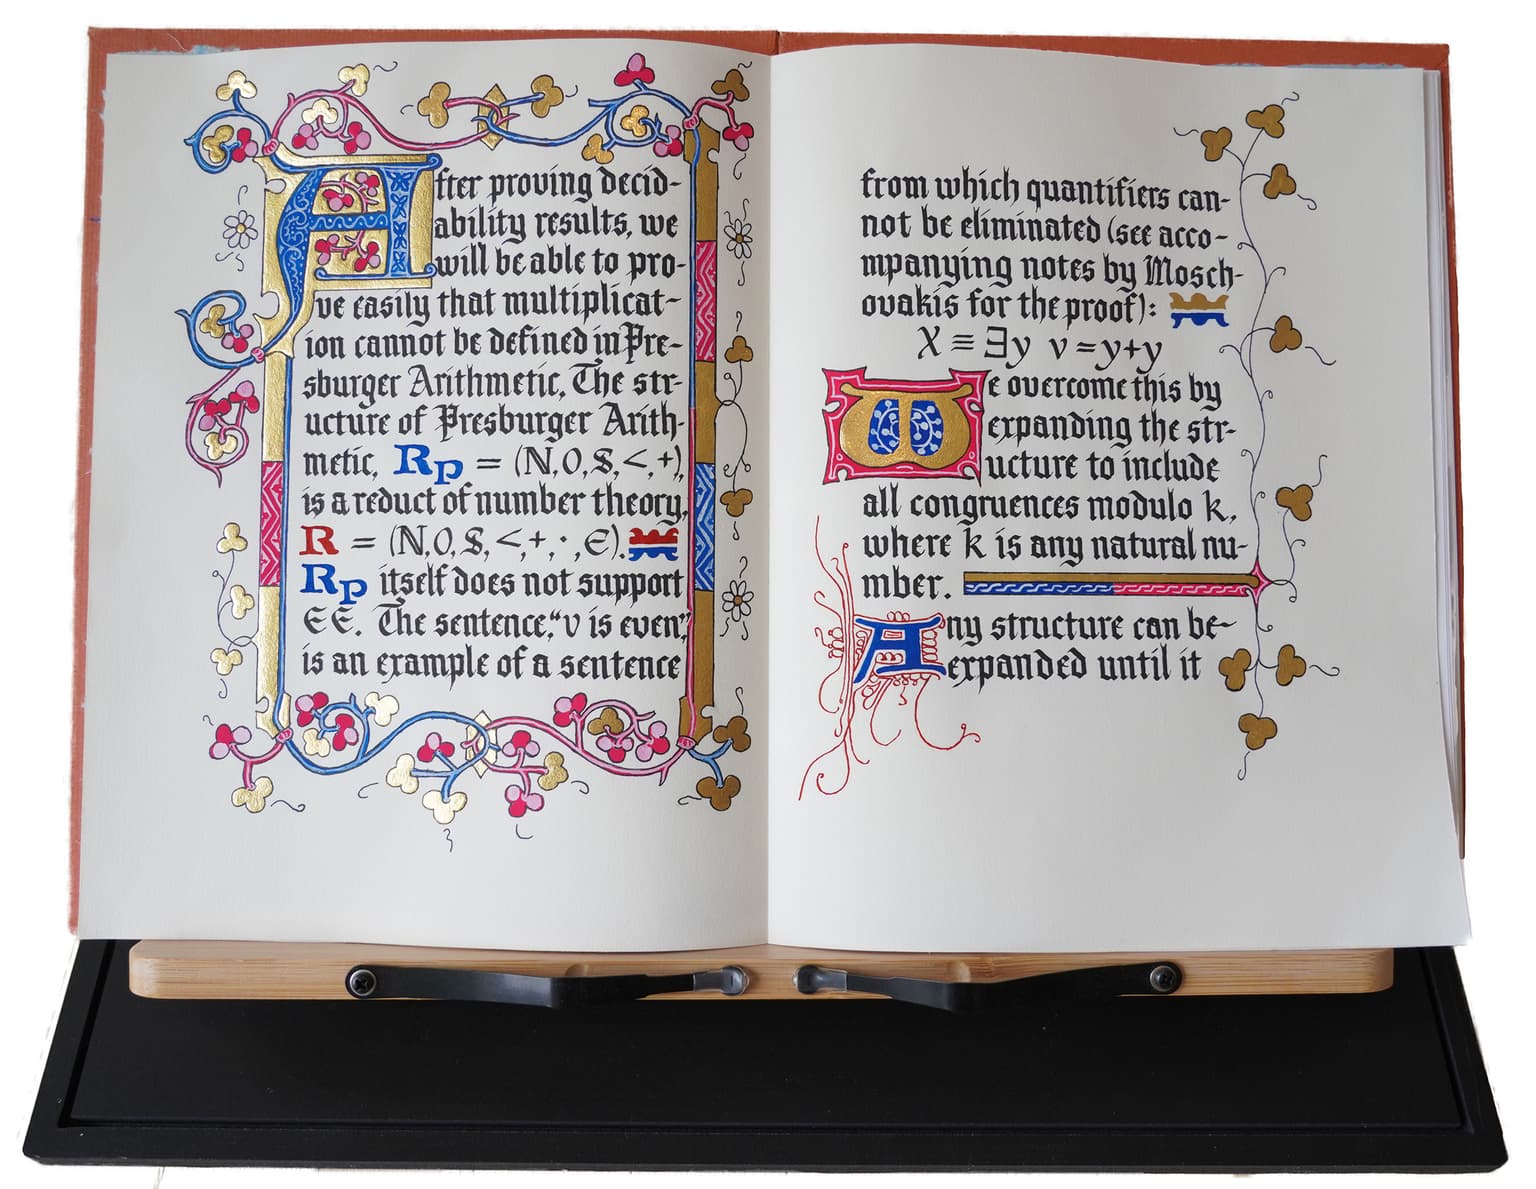 After proving decid-
ability results, we
will be able to pro-
ve easily that multiplicat-
ion cannot be defined in Pre-
sburger Arithmetic. The str-
ucture of Presburger Arith-
metic, Rp = (N,0,S,<,+),
is a reduct of number theory,
R = (N,0,S,<,+,·,E).
Rp itself does not support
EE. The sentence, “v is even,”
is an example of a sentence
from which quantifiers can-
not be eliminated (see acco-
mpanying notes by Mosch-
ovakis for the proof):
X ≡ ∃y v=y+y
We overcome this by
expanding the str-
ucture to include
all congruences modulo k,
where k is any natural nu-
mber.
Any structure can be
expanded until it